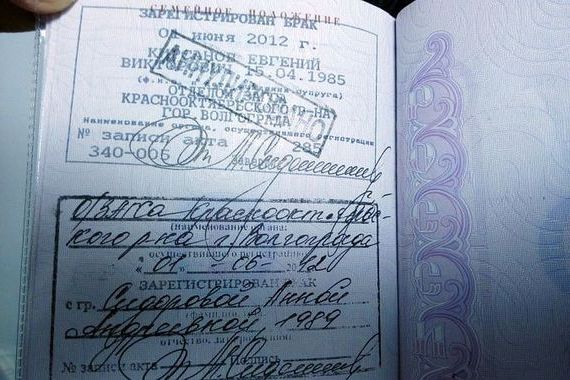 СЕМЕЙНОЕ ПОЛОЖЕНИЕ
ЗАРЕГИСТРИРОВАН БРАК
ИЮНЯ 2012 г.
ЕВГЕНИЙ
15.04.1985
ОТДЕЛОМ ЗАГСА
КРАСНООКТЯБРЬСКОГО Р-НА
ГОР. ВОЛГОГРАДА
Наименование органа, осуществившего регистрацию
№ записи акта 285
340-006
О/ЗАГСа Краснооктябрь-
ского р-на г. Волгограда
(наименование органа,
осуществившего регистрацию)
"01" - 06 - 2012
ЗАРЕГИСТРИРОВАН БРАК
с гр. Сидоровой Анной
Андреевной, 1989
отчество, дата рождения)
№ записи акта Подпись